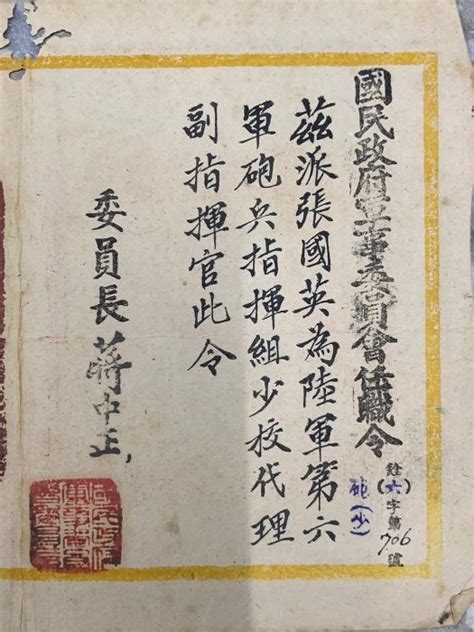 國民政府軍事委員會任職令
銓(六)字第706號
砲(少)
茲派張國英為陸軍第六
軍砲兵指揮組少校代理
副指揮官此令
委員長蔣中正